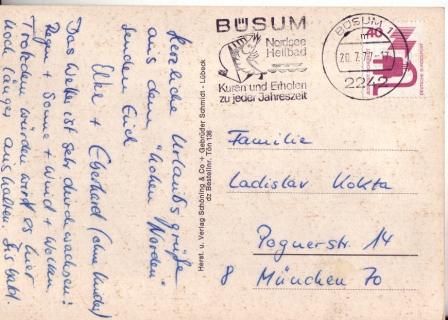 Herzliche Urlaubsgrüße
aus dem "hohen Norden"
senden Euch
Elke + Eberhard (ohne Kinder)
Das Wetter ist sehr durchwachsen!
Regen + Sonne + Wind + Wolken.
Trotzdem würden wir es hier
noch länger aushalten. Bis bald
Herst. u. Verlag Schöning & Co + Gebrüder Schmidt - Lübeck
dz Bestellnr. Tön 136
BÜSUM
Nordsee
Heilbad
Kuren und Erholen
zu jeder Jahreszeit
BÜSUM 1
20.7.77-17
2242
40
Familie
Ladislav Kokta
Pognerstr. 14
8 München 70